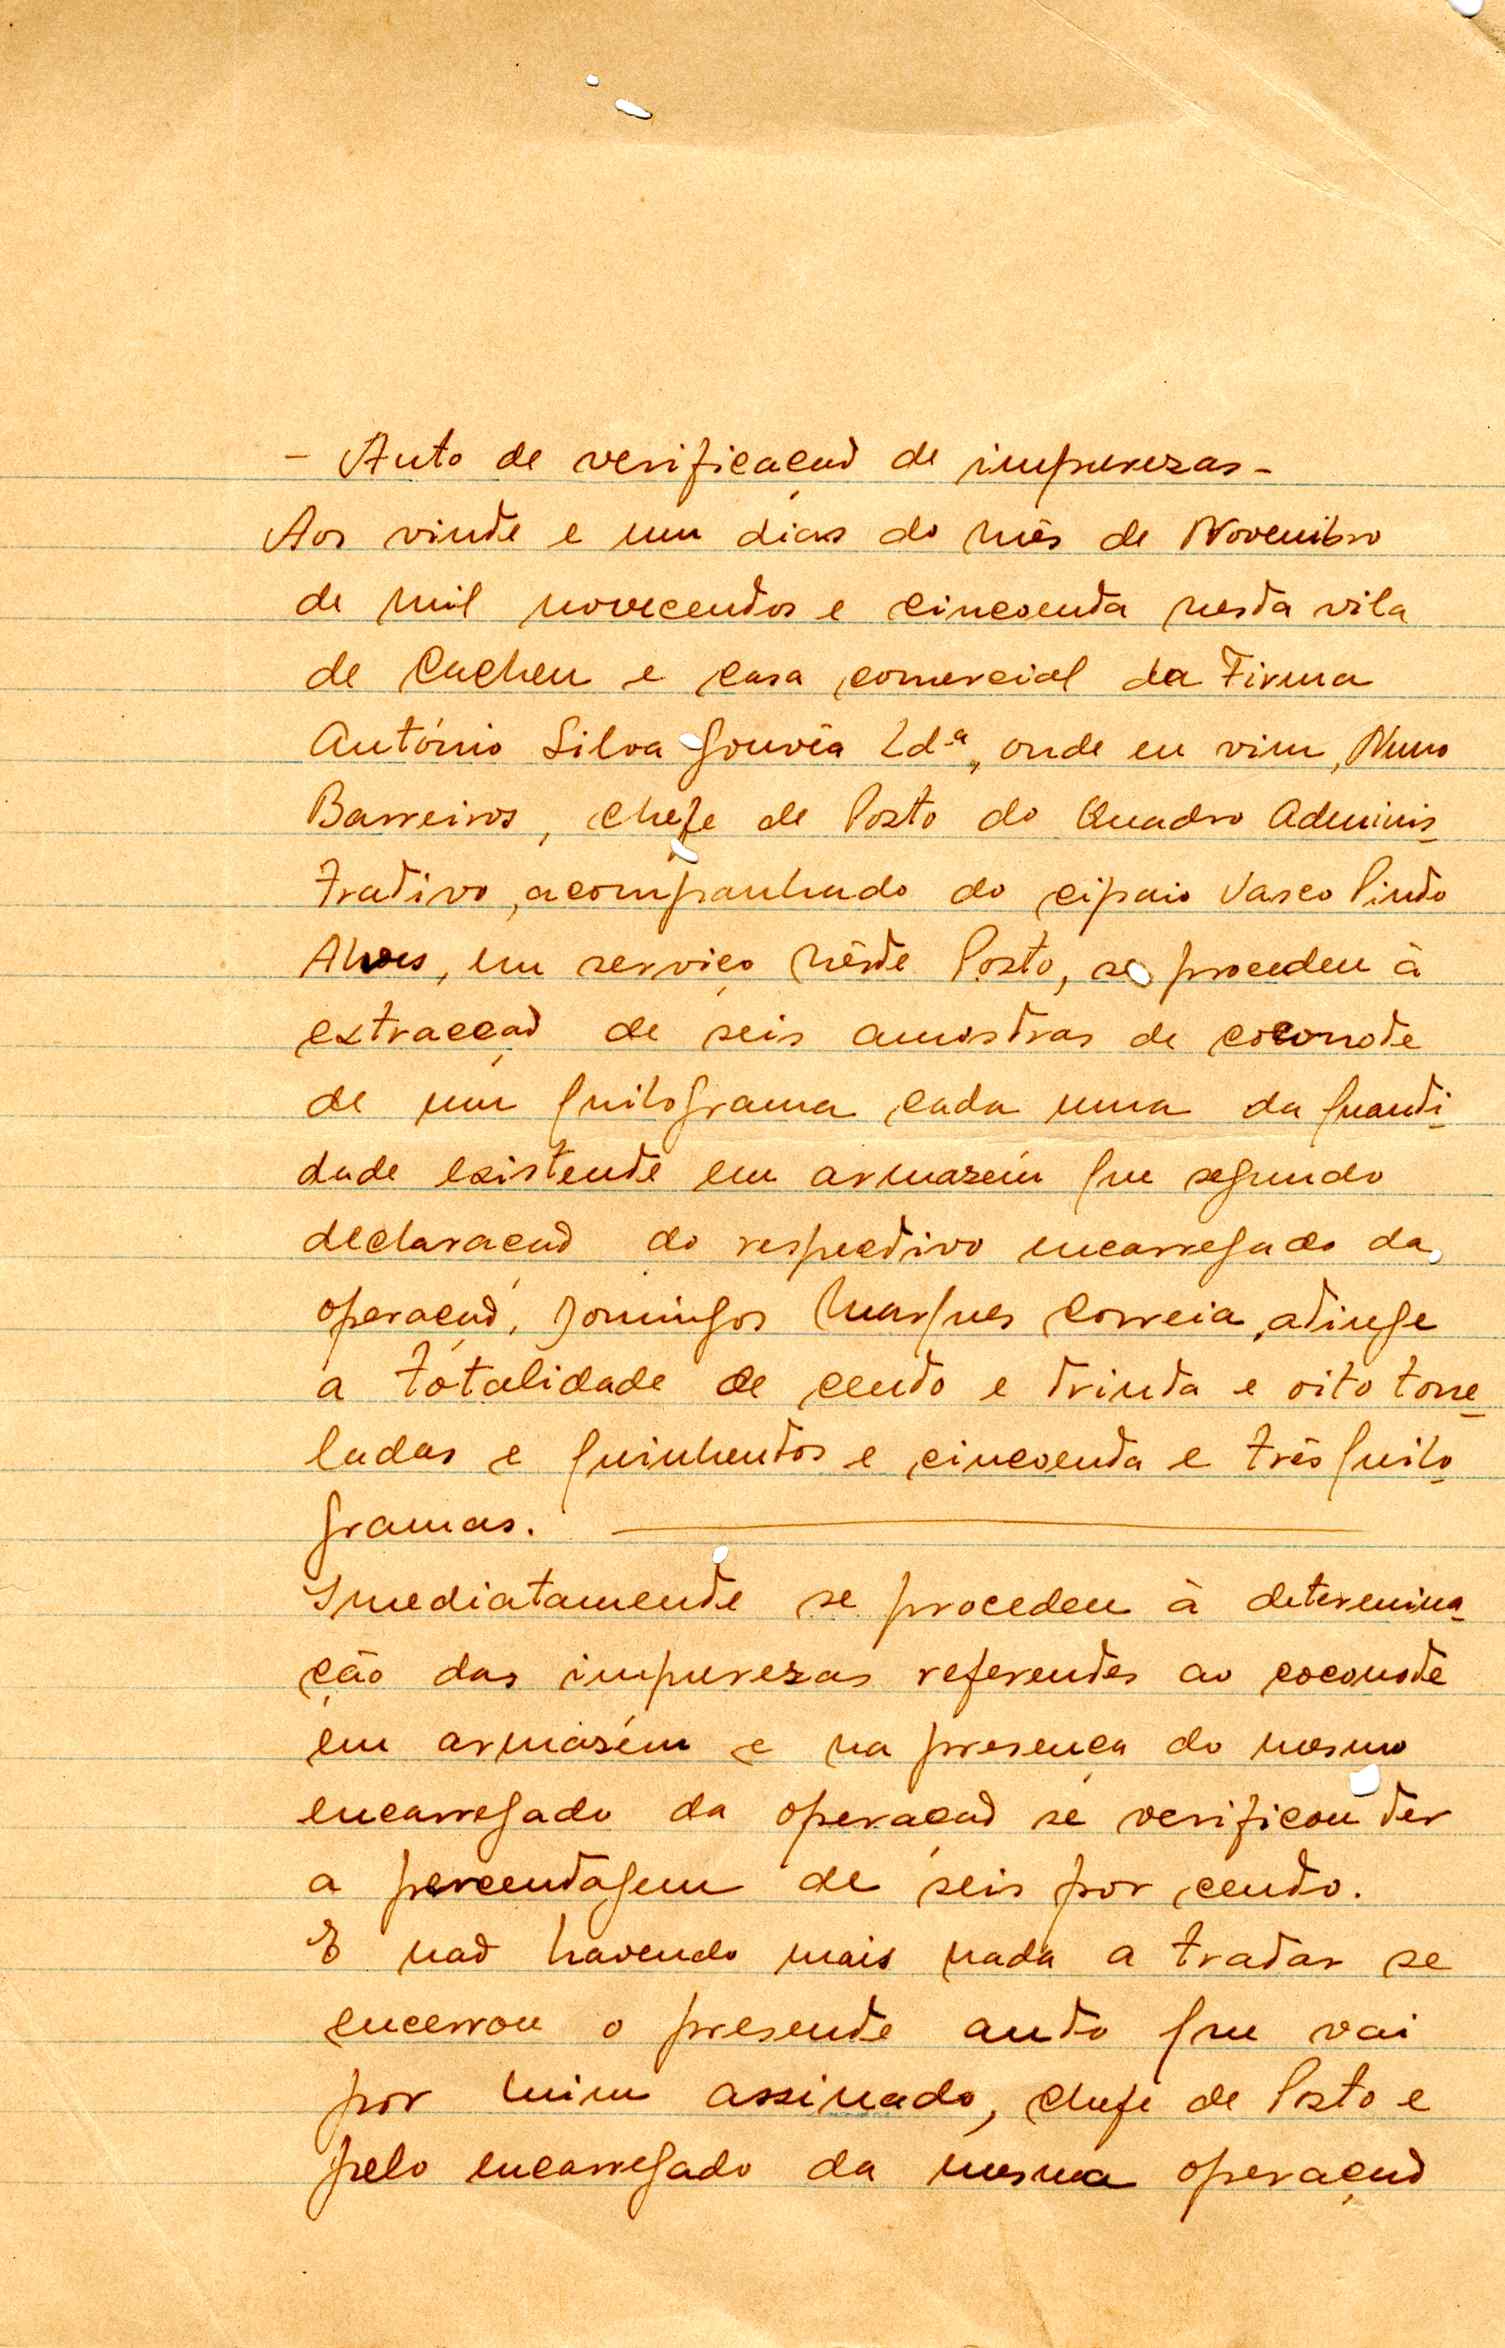 - Auto de verificação de impurezas -
Aos vinte e um dias do mês de Novembro
de mil novecentos e cincoenta nesta vila
de Cacheu e casa comercial da Firma
António Silva Gouvêa Ldª, onde eu vim, Nuno
Barreiros, chefe de Posto do Quadro Adminis-
trativo, acompanhado do cipaio Vasco Pinto
Alves, em serviço nêste Posto, se procedeu à
extracção de seis amostras de coconote
de um quilograma cada uma da quanti-
dade existente em armazém que segundo
declaração do respectivo encarregado da
operação, Domingos Marques Correia, atinge
a totalidade de cento e trinta e oito tone-
ladas e quinhentos e cincoenta e três quilo-
gramas.
Imediatamente se procedeu à determina-
ção das impurezas referentes ao coconote
em armazém e na presença do mesmo
encarregado da operação se verificou ter
a percentagem de seis por cento.
E não havendo mais nada a tratar se
encerrou o presente auto que vai
por mim assinado, chefe de Posto e
pelo encarregado da mesma operação